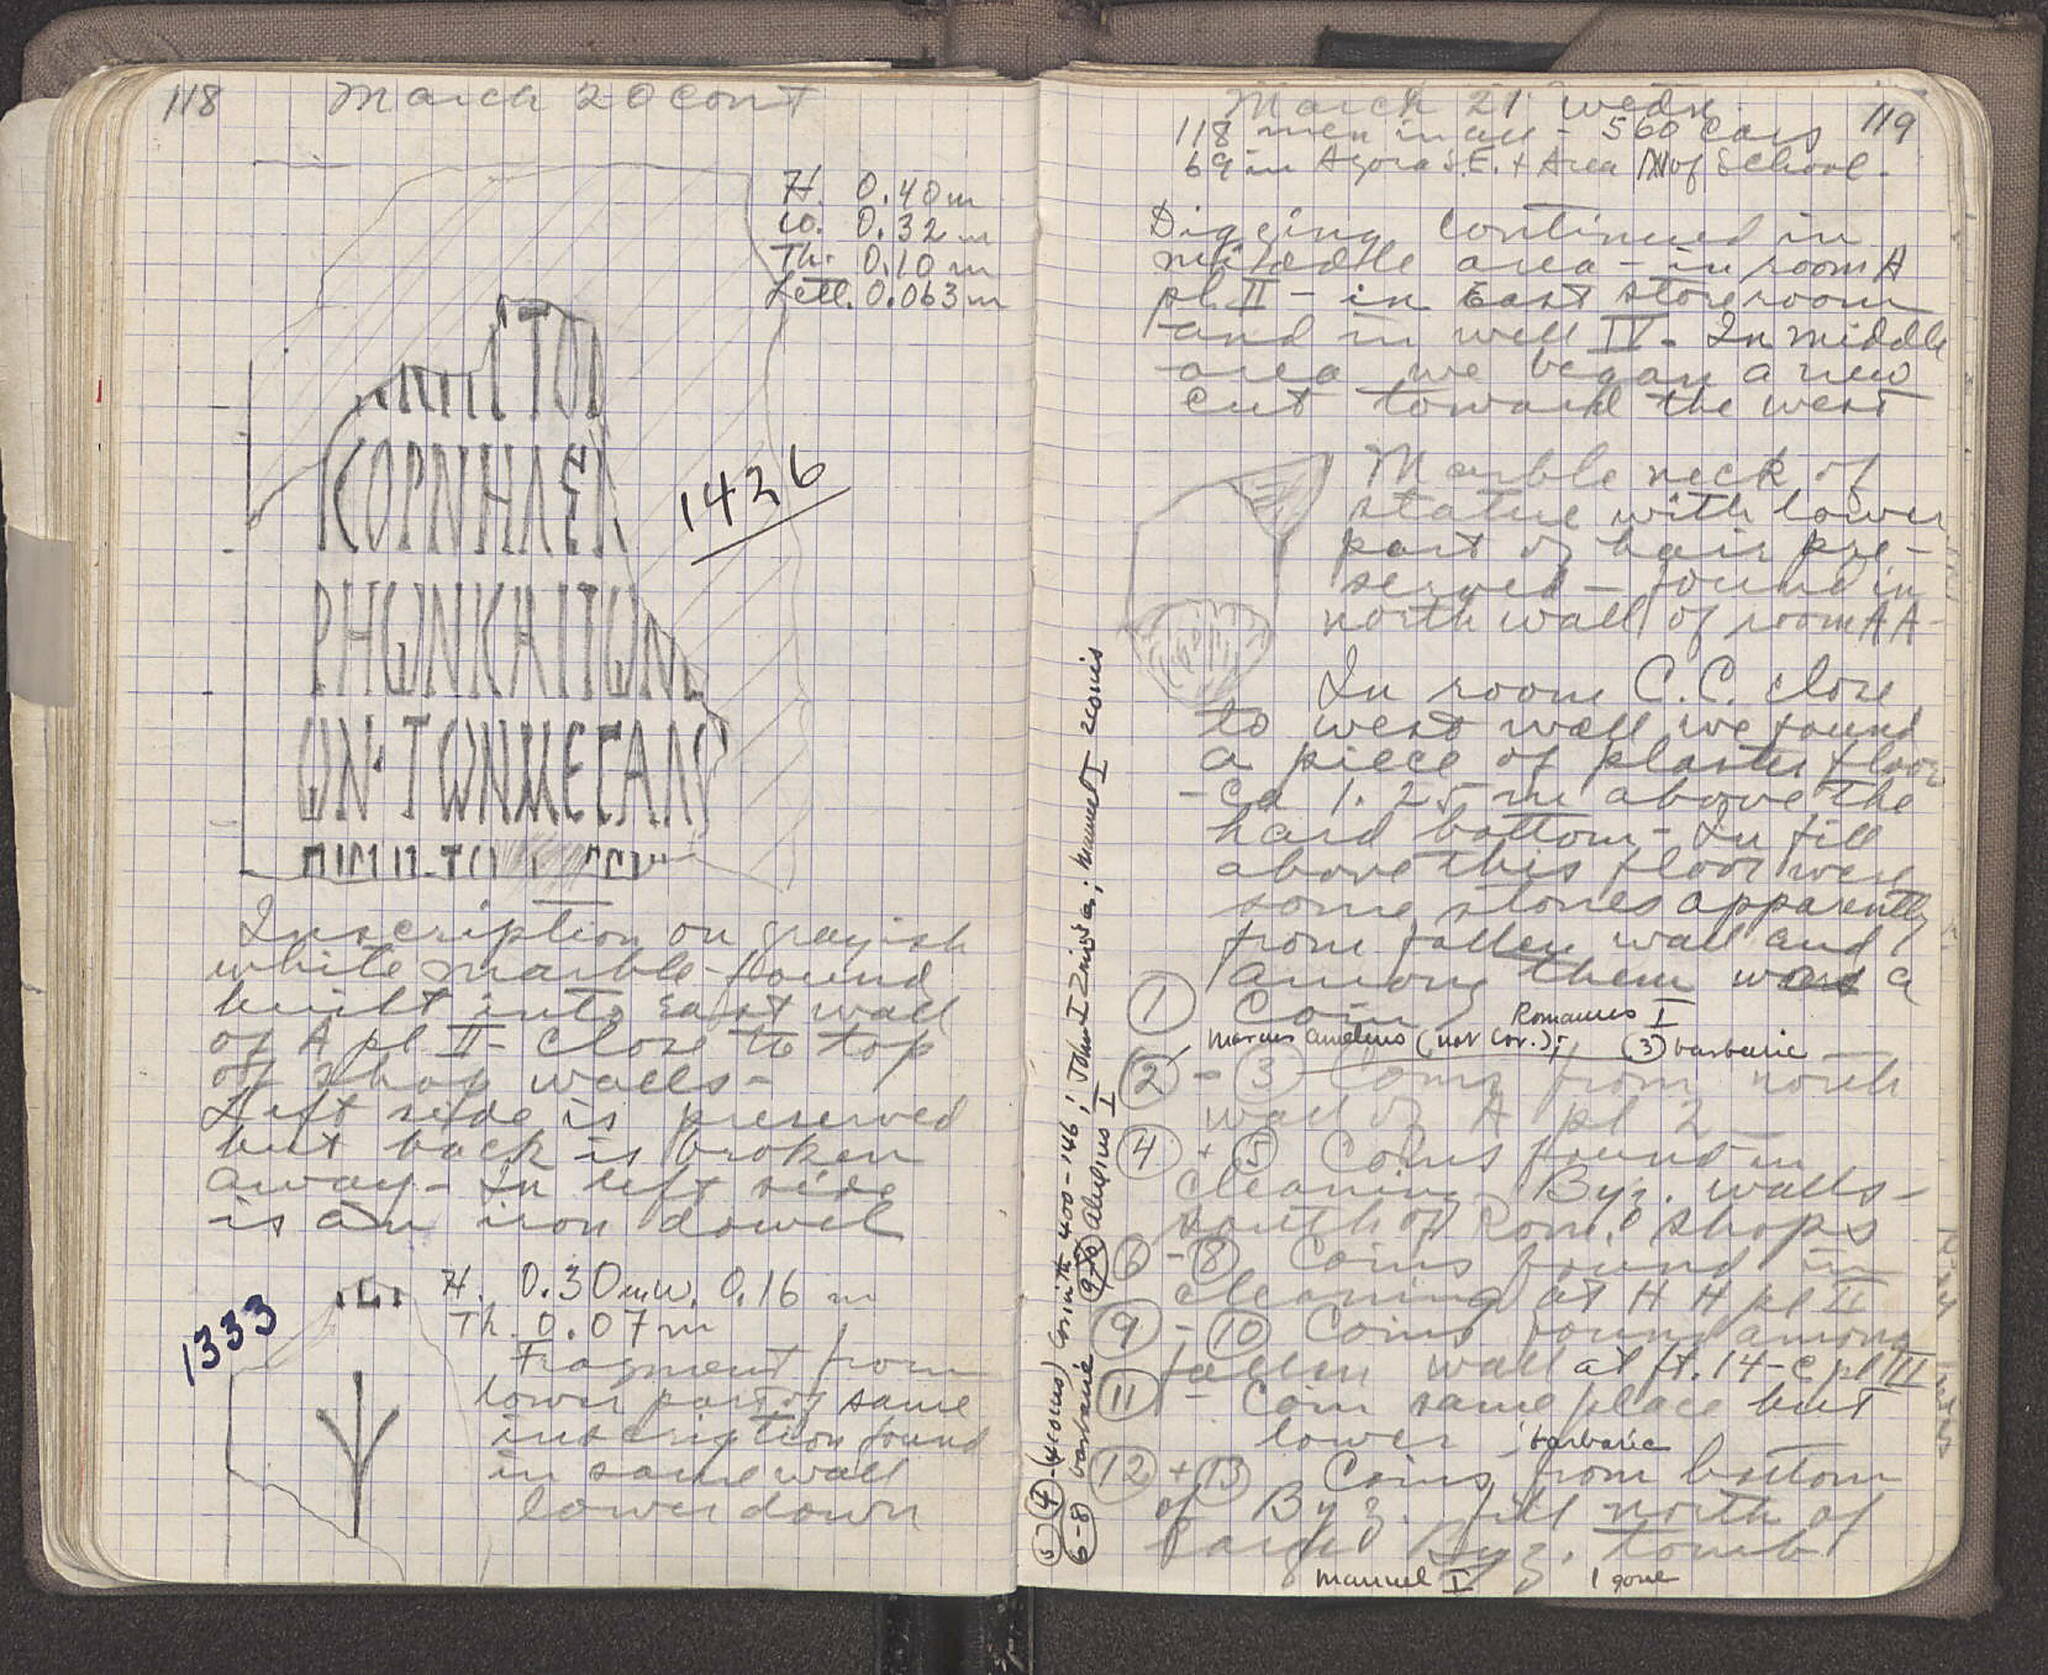 118 March 20 cont
H. 0.40 m
W. 0.32 m
Th. 0.10 m
Lett. 0.063 m
ΤΟ
ΚΟΡΝΗΛΕΙ
1426
ΡΗΩΝΚΑΙΤΩΝ
ΩΝ·ΤΩΝΜΕΓΑΛ
Inscription on grayish
white marble - found
built into East wall
of A pl II - close to top
of shop walls -
Left side is preserved
but back is broken
away - In left side
is an iron dowel
1333
H. 0.30 m W. 0.16 m
Th. 0.07 m
Fragment from
lower part of same
inscription found
in same wall
lower down
March 21 Wedn. 119
118 men in all - 560 cars
69 in Agora S.E. + Area N of School.
Digging continued in
middle area - in room A
pl. II - in East storeroom
and in well IV - In middle
area we began a new
cut toward the west
Marble neck of
statue with lower
part of hair pre-
served - found in
north wall of room AA -
In room C.C. close
to west wall we found
a piece of plaster floor
- ca 1.25 m above the
hard bottom - In fill
above this floor were
some stones apparently
from fallen wall and
among them was a
① Coin Romanus I
Marcus Aurelius (not Cor.); ③ barbaric
② - ③ Coins from north
wall of A pl 2 -
④ + ⑤ Coins found in
cleaning Byz. walls -
south of Rom. shops
⑥ - ⑧ Coins found in
cleaning at HH pl II
⑨ - ⑩ Coins found among
fallen wall at ft. 14 - C pl III
⑪ - Coin same place but
lower barbaric
⑫ + ⑬ Coins from bottom
of Byz. fill north of
large Byz. tomb
Manuel I 1 gone
④ (4 coins) Corinth 400-146; John I Zimisces; Manuel I 2 coins
6-8 barbaric 9-10 Alexius I